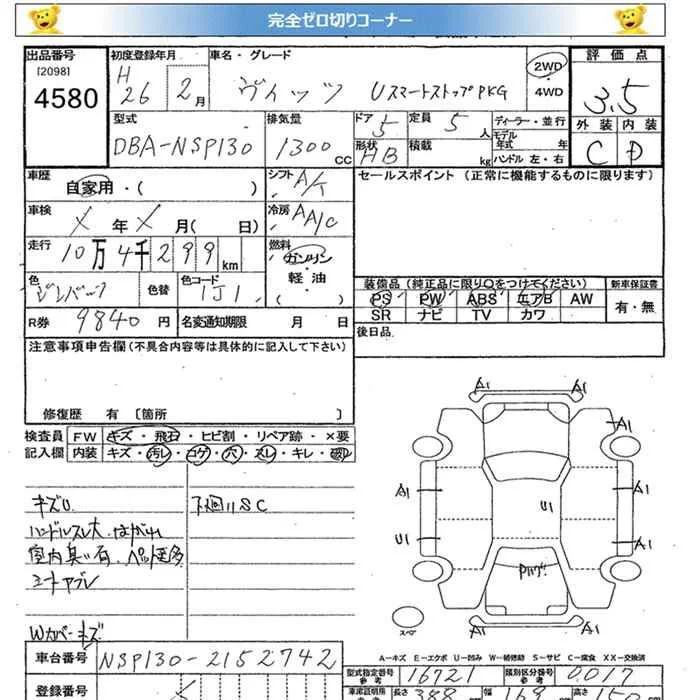 完全ゼロ切りコーナー
出品番号 初度登録年月 車名・グレード 2WD 評価点
[2098] H
4580 26 2月 ヴィッツ UスマートストップPKG 4WD 3.5
型式 排気量 ドア 5 定員 5人 ディーラー・並行 外装 内装
DBA-NSP130 1300cc 形状 HB 積載 kg モデル年式 年 C D
ハンドル 左・右
車歴 シフト A/T セールスポイント (正常に機能するものに限ります)
自家用・( )
車検 X年X月( 日) 冷房 AA/C
走行 10万4千299km 燃料 ガソリン
軽油
( )
色 色替 色コード 1J1 装備品(純正品に限り○をつけてください) 新車保証書
PS PW ABS エアB AW 有・無
SR ナビ TV カワ
R券 9840円 名変通知期限 月 日 後日品
注意事項申告欄(不具合内容等は具体的に記入して下さい)
修復歴 有 〔箇所 〕
検査員 FW キズ・飛石・ヒビ割・リペア跡・×要
記入欄 内装 キズ・汚レ・コゲ・穴・スレ・キレ・破レ
A1 A1
A1
A1 A1
U1
U1 A1
キズU 下廻りSC
ハンドルスレ大、はがれ
室内臭い有、ペット毛多
シートアブレ
Wカバーキズ
スペア
A-キズ E-エクボ U-凹み W-補修跡 S-サビ C-腐食 XX-交換済
車台番号 NSP130-2152742
型式指定番号 16721 類別区分番号 0017
参考 参考
登録番号 車庫証明用 長さ 388 幅 169